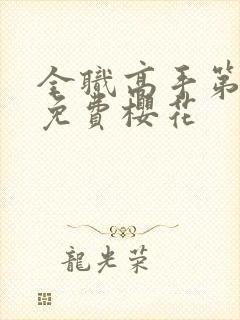 全職高手第
免費櫻花
龍光荣